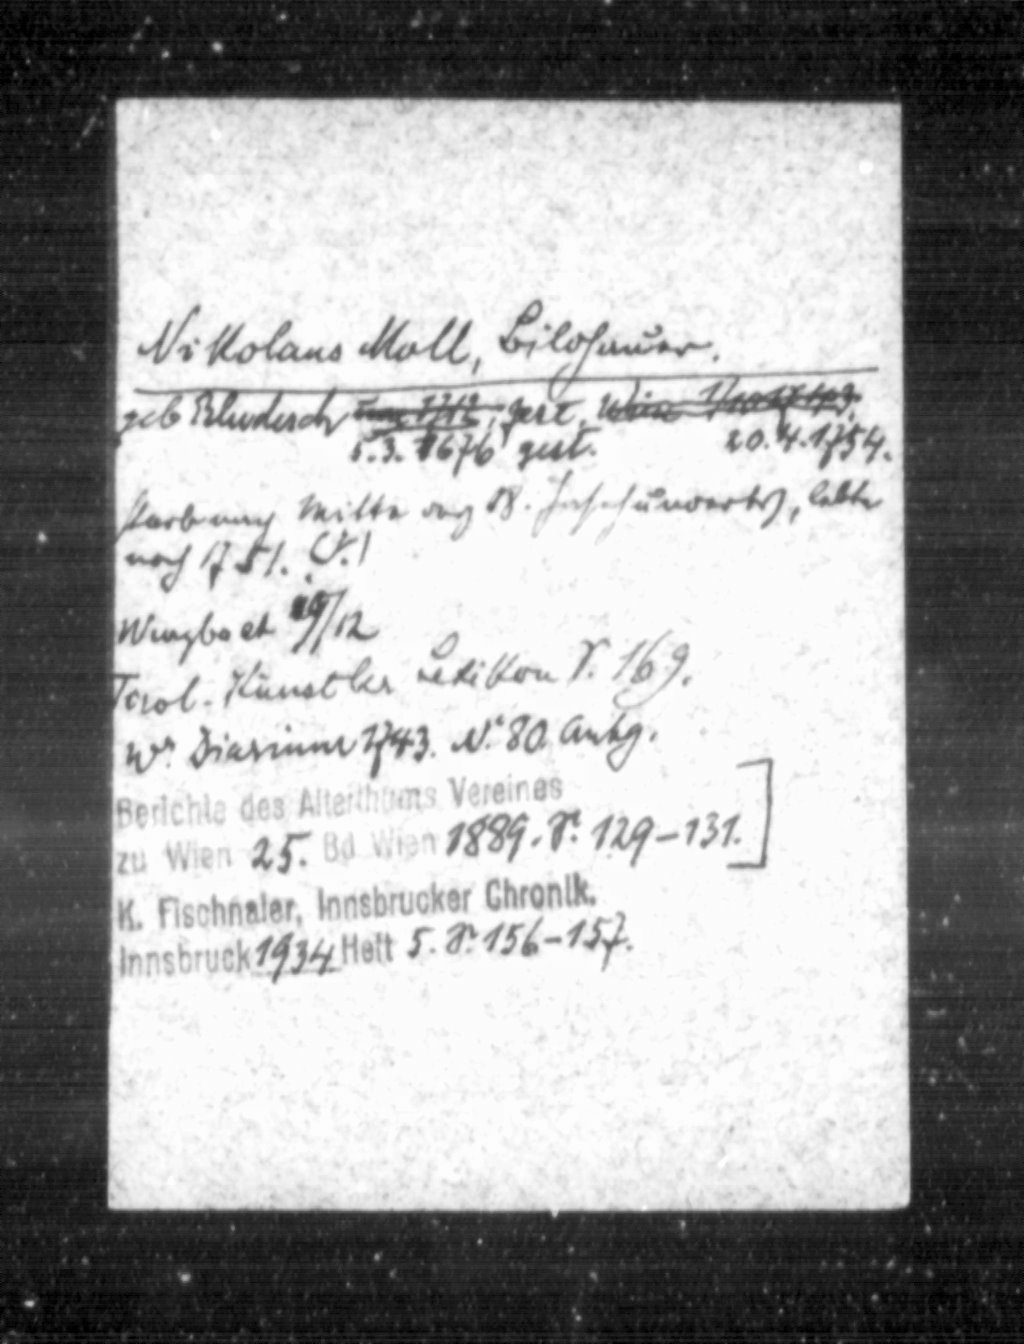 Nikolaus Moll, Bildhauer.
geb Bludesch gest. Wien
5.3.1676 gest. 20.4.1754.
starb nach Mitte des 18. Jahrhunderts, lebte
noch 1751.
Wurzbach 19/12
Tirol. Künstler Lexikon S. 169.
Wr. Diarium 1743. Nr 80. Anhg.
Berichte des Alterthums Vereines
zu Wien 25. Bd Wien 1889. S. 129-131.]
K. Fischnaler, Innsbrucker Chronik.
Innsbruck 1934 Heft 5. S. 156-157.